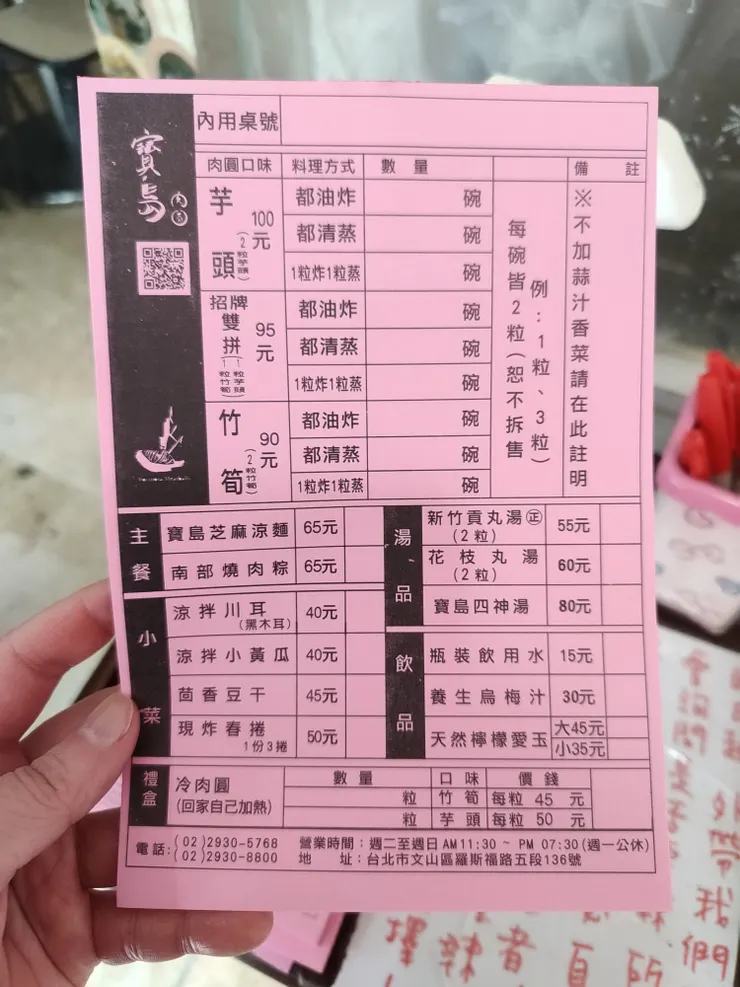 寶島肉圓
內用桌號
肉圓口味 料理方式 數量 備註
芋頭 100元 (2粒芋頭)
都油炸 碗
都清蒸 碗
1粒炸1粒蒸 碗
招牌雙拼 95元 (1粒芋頭 1粒竹筍)
都油炸 碗
都清蒸 碗
1粒炸1粒蒸 碗
竹筍 90元 (2粒竹筍)
都油炸 碗
都清蒸 碗
1粒炸1粒蒸 碗
每碗皆2粒(恕不拆售
例:1粒、3粒)
※不加蒜汁香菜請在此註明
主餐
寶島芝麻涼麵 65元
南部燒肉粽 65元
小菜
涼拌川耳 40元
(黑木耳)
涼拌小黃瓜 40元
茴香豆干 45元
現炸春捲 50元
1份3捲
湯品
新竹貢丸湯㊣ 55元
(2粒)
花枝丸湯 60元
(2粒)
寶島四神湯 80元
飲品
瓶裝飲用水 15元
養生烏梅汁 30元
天然檸檬愛玉 大45元
小35元
禮盒
冷肉圓
(回家自己加熱)
數量 口味 價錢
粒 竹筍 每粒 45 元
粒 芋頭 每粒 50 元
電話:(02)2930-5768
(02)2930-8800
營業時間:週二至週日 AM11:30 ~ PM 07:30(週一公休)
地址:台北市文山區羅斯福路五段136號
我們